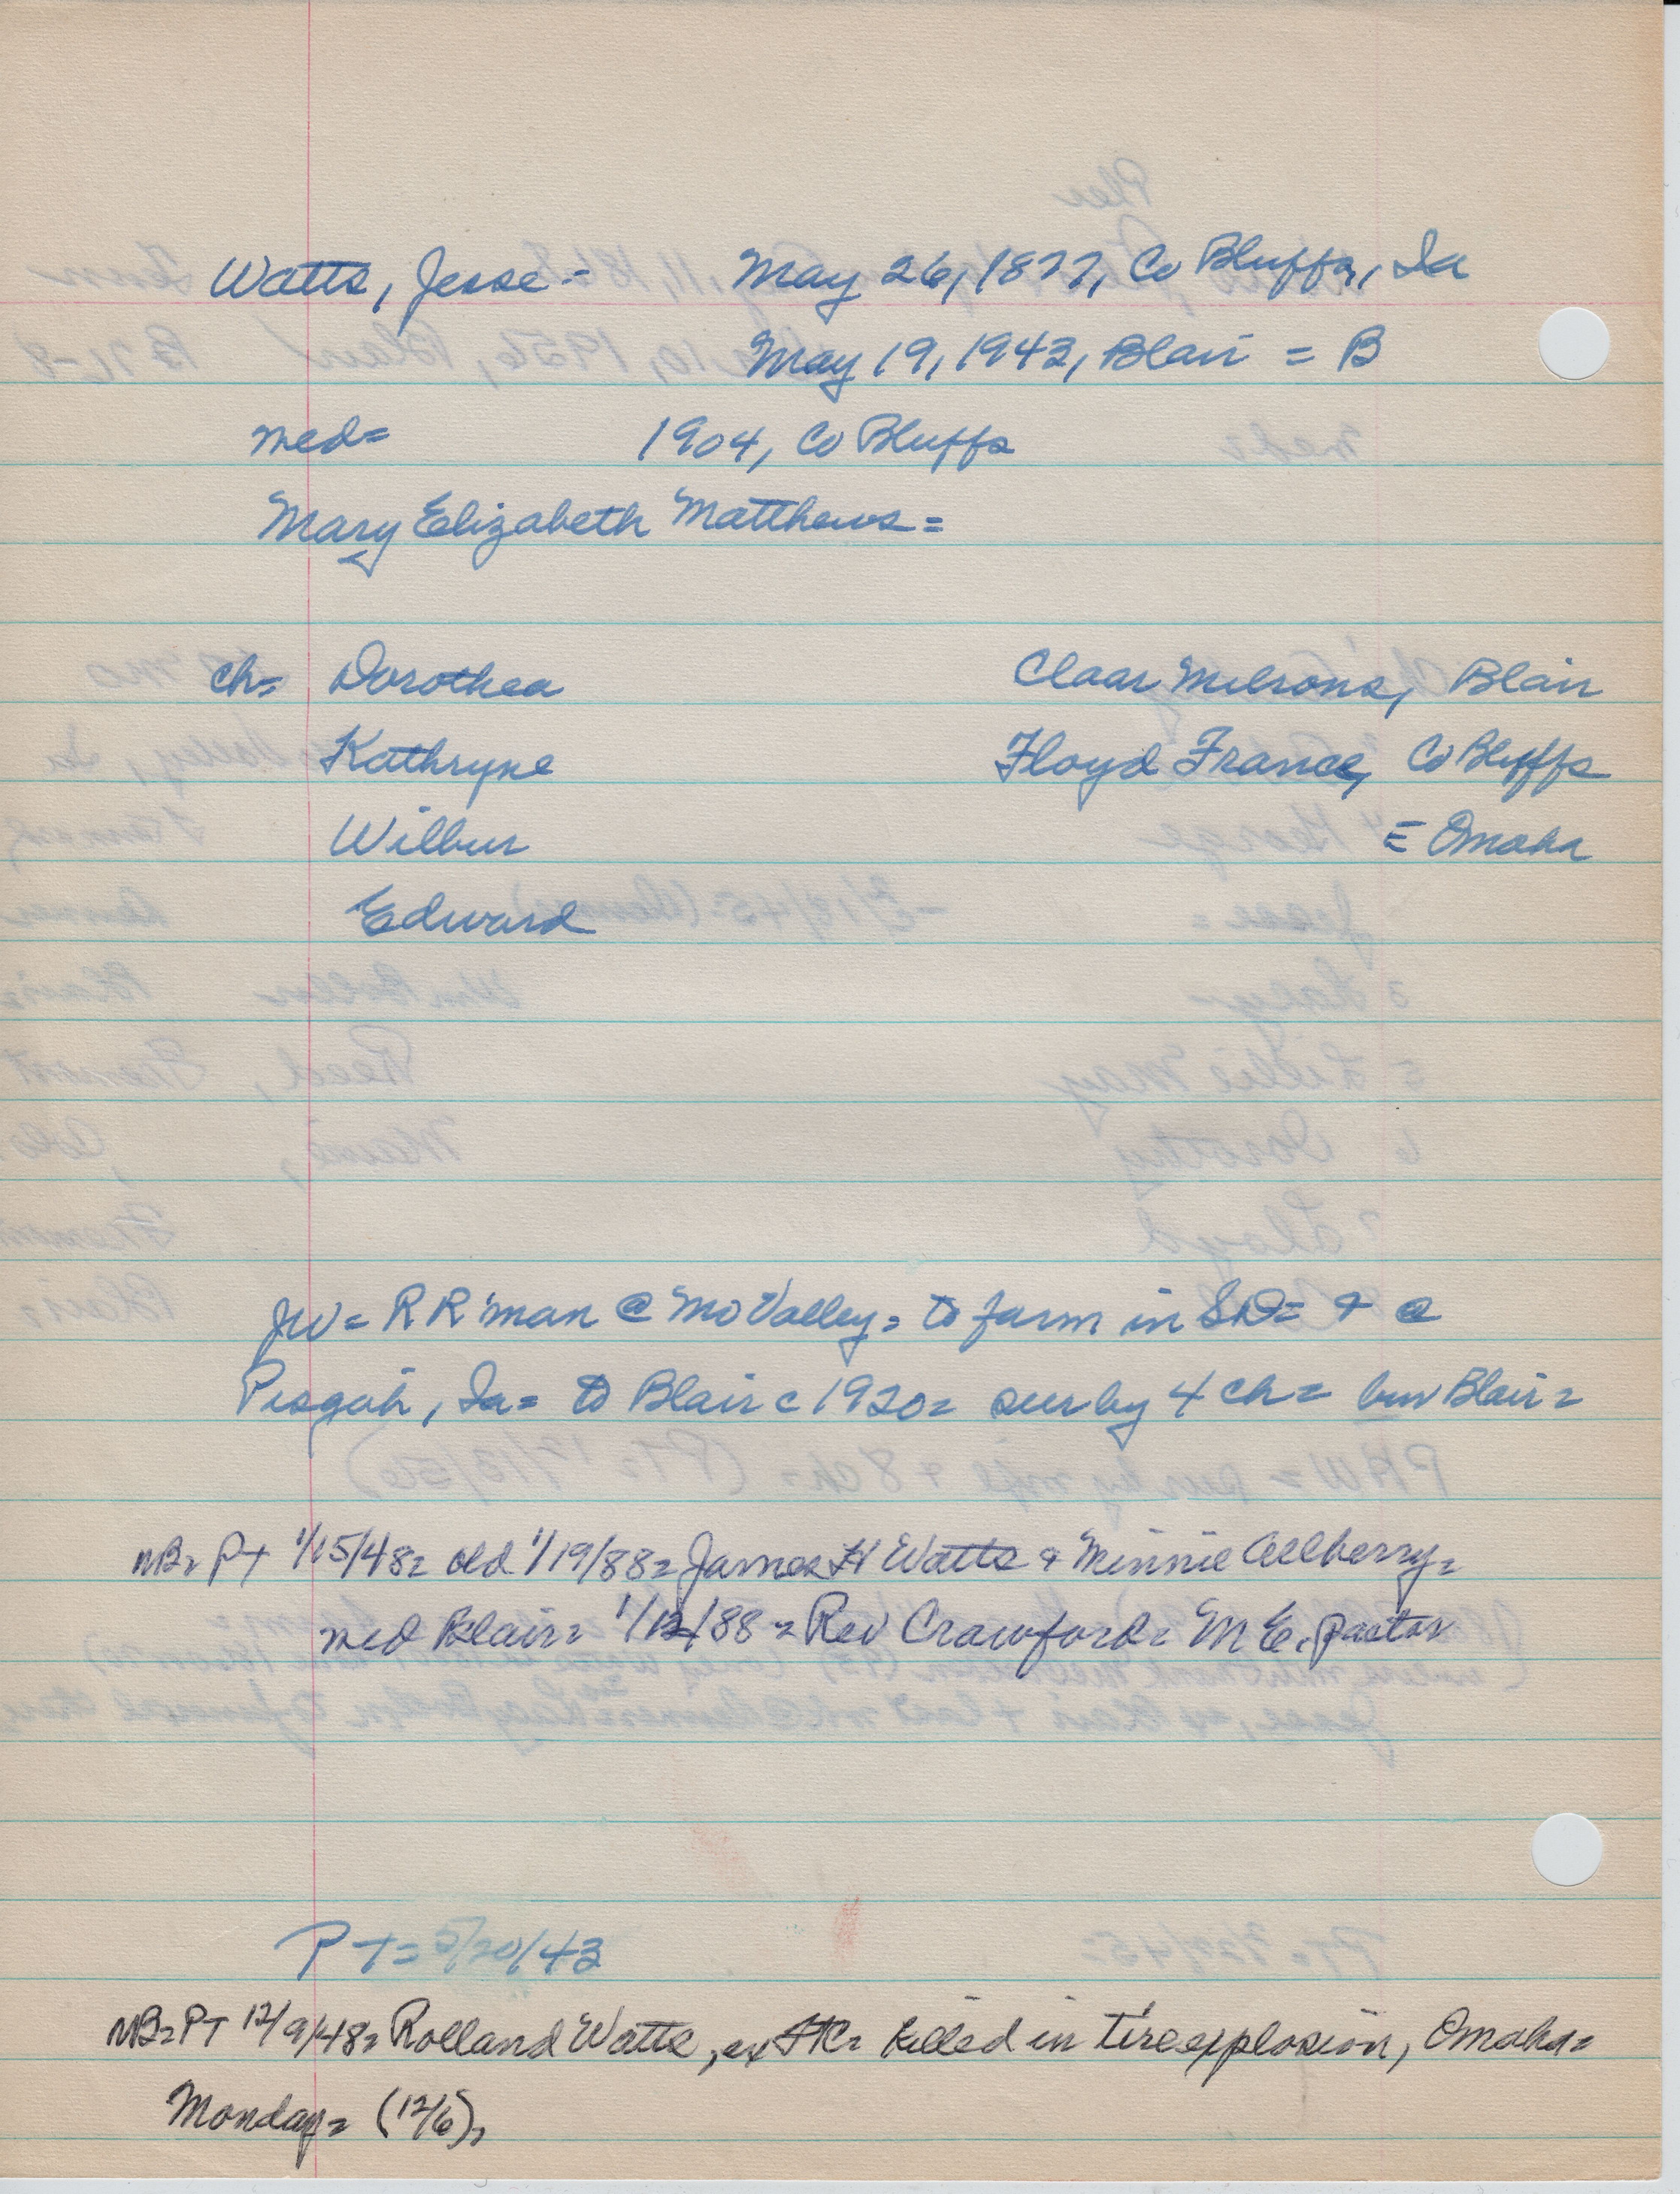 Watts, Jesse = May 26, 1877, Co Bluffs, Ia
May 19, 1943, Blair = B
med= 1904, Co Bluffs
Mary Elizabeth Matthews =
ch= Dorothea Claar Milsons, Blair
Kathryne Floyd France, Co Bluffs
Wilbur = Omaha
Edward
JW= RR man @ Mo Valley= to farm in SD= + @
Pisgah, Ia= to Blair c 1920= sur by 4 ch= bur Blair=
NB= PT 1/15/48= old 1/19/88= James H Watts & Minnie Allberry=
med Blair= 1/12/88= Rev Crawford= M E. Pastor
PT= 5/20/43
NB= PT 12/9/48= Rolland Watts, ex killed in tire explosion, Omaha=
Monday= (12/6)=